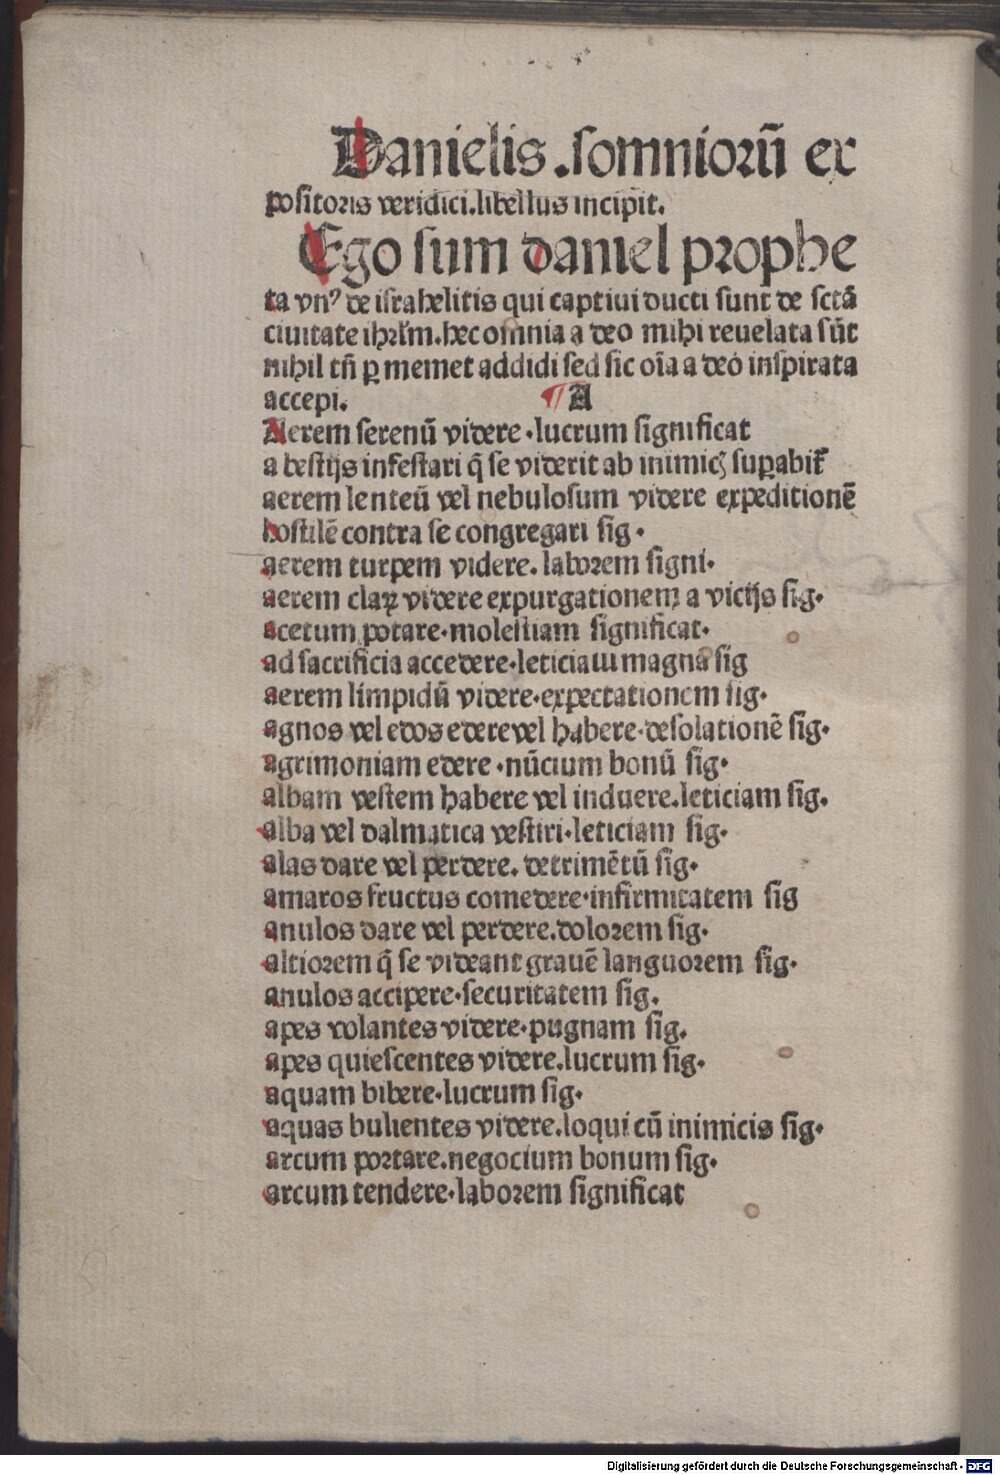 Danielis .somnioꝝ ex
positoris veridici.libellus incipit.
Ego sum daniel prophe
ta vnꝰ de israhelitis qui captiui ducti sunt de sctā
ciuitate ihrl̄m.hec omnia a deo mihi reuelata sūt
nihil tn̄ ꝑ memet addidi sed sic oīa a deo inspirata
accepi. ¶ A
Aerem serenū videre.lucrum significat
a bestijs infestari q̄ se viderit ab inimicꝫ suꝑabit᷑
aerem lenteū vel nebulosum videre expeditionē
hostilē contra se congregari sig.
aerem turpem videre. laborem signi.
aerem claꝝ videre expurgationem a vicijs sig.
acetum potare.molestiam significat.
ad sacrificia accedere.leticiam magnā sig
aerem limpidū videre.expectationem sig.
agnos vel edos edere vel habere.desolationē sig.
agrimoniam edere .nūcium bonū sig.
albam vestem habere vel induere.leticiam sig.
alba vel dalmatica vestiri.leticiam sig.
alas dare vel perdere. detrimētū sig.
amaros fructus comedere.infirmitatem sig
anulos dare vel perdere.dolorem sig.
altiorem q̄ se videant grauē languorem sig.
anulos accipere.securitatem sig.
apes volantes videre.pugnam sig.
apes quiescentes videre.lucrum sig.
aquam bibere.lucrum sig.
aquas bulientes videre.loqui cū inimicis sig.
arcum portare.negocium bonum sig.
arcum tendere.laborem significat
Digitalisierung gefördert durch die Deutsche Forschungsgemeinschaft - DFG